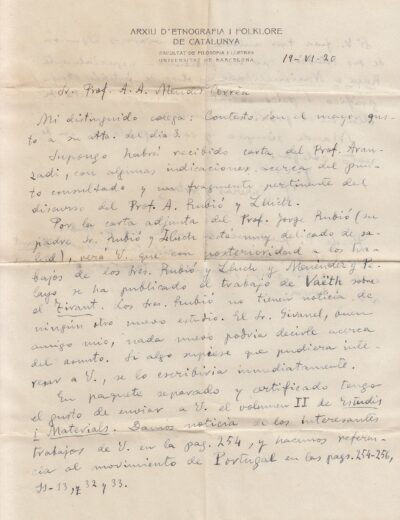 ARXIU D'ETNOGRAFIA I FOLKLORE
DE CATALUNYA
FACULTAT DE FILOSOFIA I LLETRES
UNIVERSITAT DE BARCELONA
19-VI-20
Sr. Prof. A. A. Mendes Corrêa
Mi distinguido colega: Contesto con el mayor gus-
to a su atta. del día 3.
Supongo habrá recibido carta del Prof. Aran-
zadi, con algunas indicaciones acerca del pun-
to consultado y un fragmento pertinente del
discurso del Prof. A. Rubió y Lluch.
Por la carta adjunta del Prof. Jorge Rubió (su
padre Sr. Rubió y Lluch está muy delicado de sa-
lud), verá V. que con posterioridad a los tra-
bajos de los Sres. Rubió y Lluch y Menéndez y Pe-
layo se ha publicado el trabajo de Vaëth sobre
el Tirant. Los Sres. Rubió no tienen noticia de
ningún otro nuevo estudio. El Sr. Givanel, buen
amigo mío, nada nuevo podría decirle acerca
del asunto. Si algo supiese que pudiera inte-
resar a V., se lo escribiría inmediatamente.
En paquete separado y certificado tengo
el gusto de enviar a V. el volumen II de Estudis
i Materials. Damos noticia de los interesantes
trabajos de V. en la pag. 254, y hacemos referen-
cia al movimiento de Portugal en las pags. 254-256,
11-13, y 32 y 33.